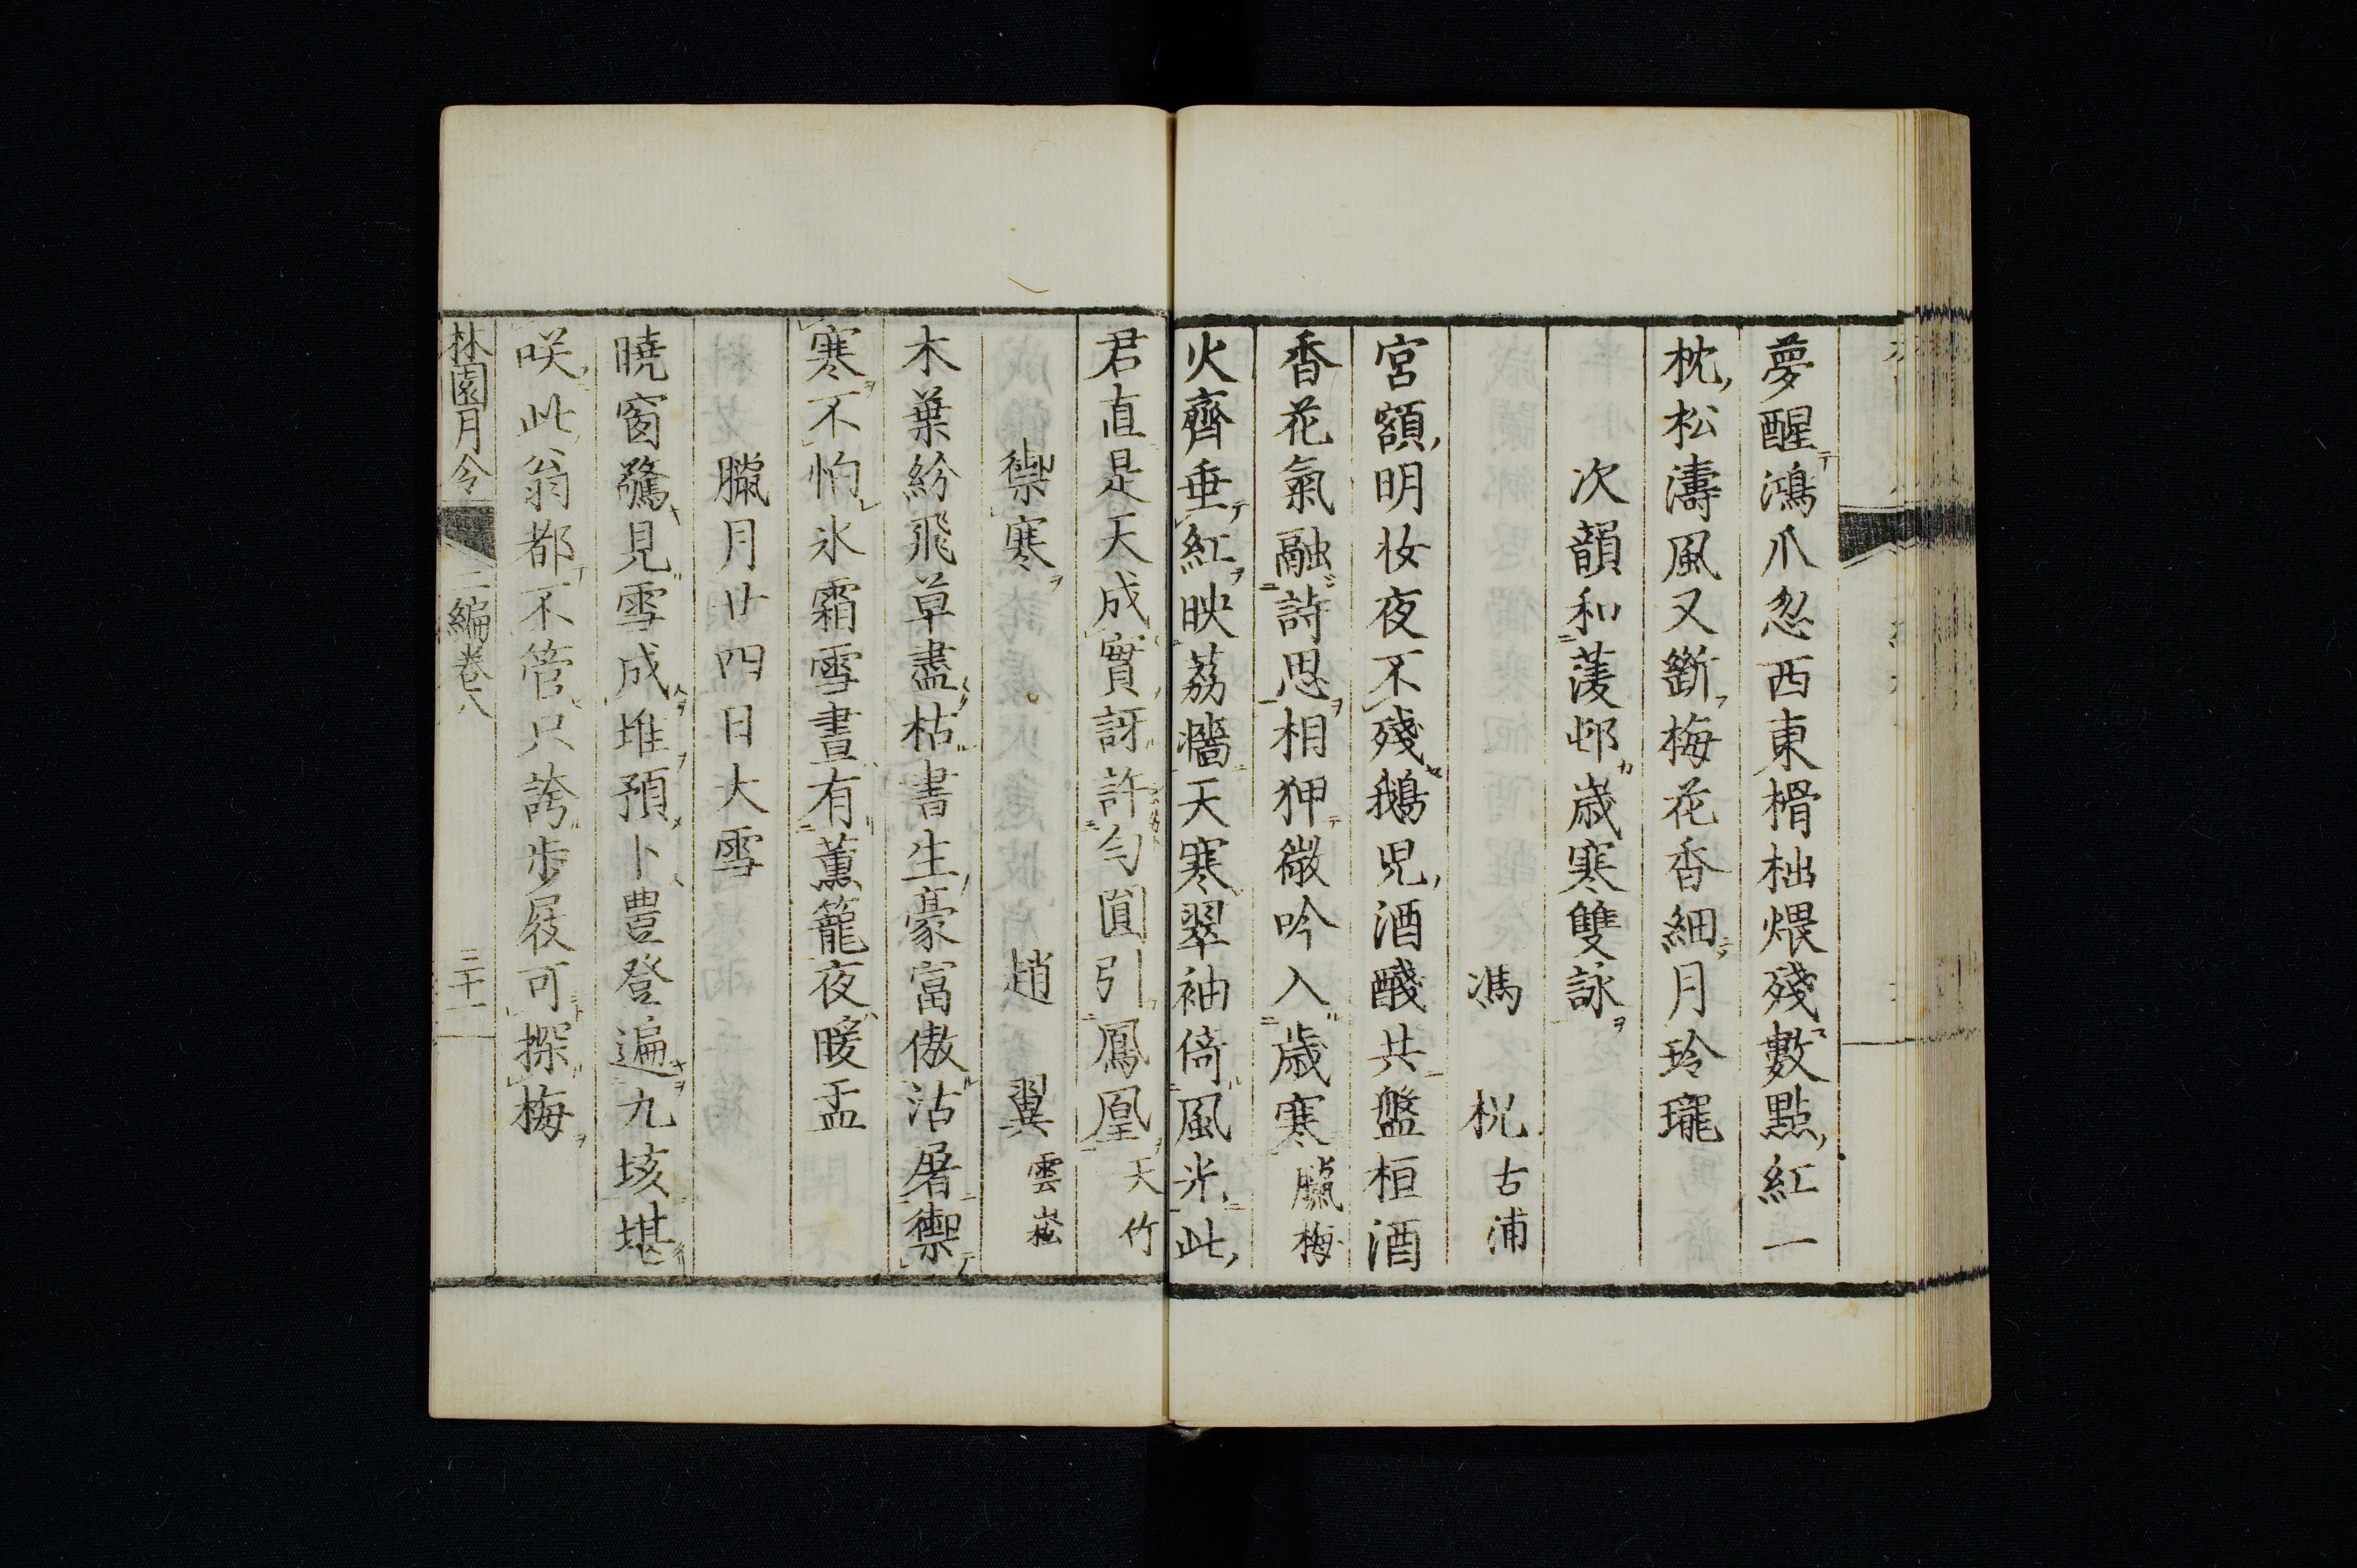 夢醒鴻爪忽西東榾柮煨殘數點紅一
枕松濤風又斷梅花香細月玲瓏
次韻和蔆邨歳寒雙詠
馮 柷 古浦
宮額明妝夜不殘鵝児酒醆共盤桓酒
香花氣融詩思相狎微吟入歳寒 臘梅
火齊垂紅映荔牆天寒翠袖倚風光此
君直是天成實訝許勻圓引鳳凰 天竹
禦寒 趙 翼 雲崧
木葉紛飛草盡枯書生豪富傲沽屠禦
寒不怕氷霜雪晝有薫籠夜暖盂
臘月廿四日大雪
曉窗驚見雪成堆預卜豊登遍九垓堪
咲此翁都不管只誇歩屐可探梅
林園月令 二編巻八 三十一